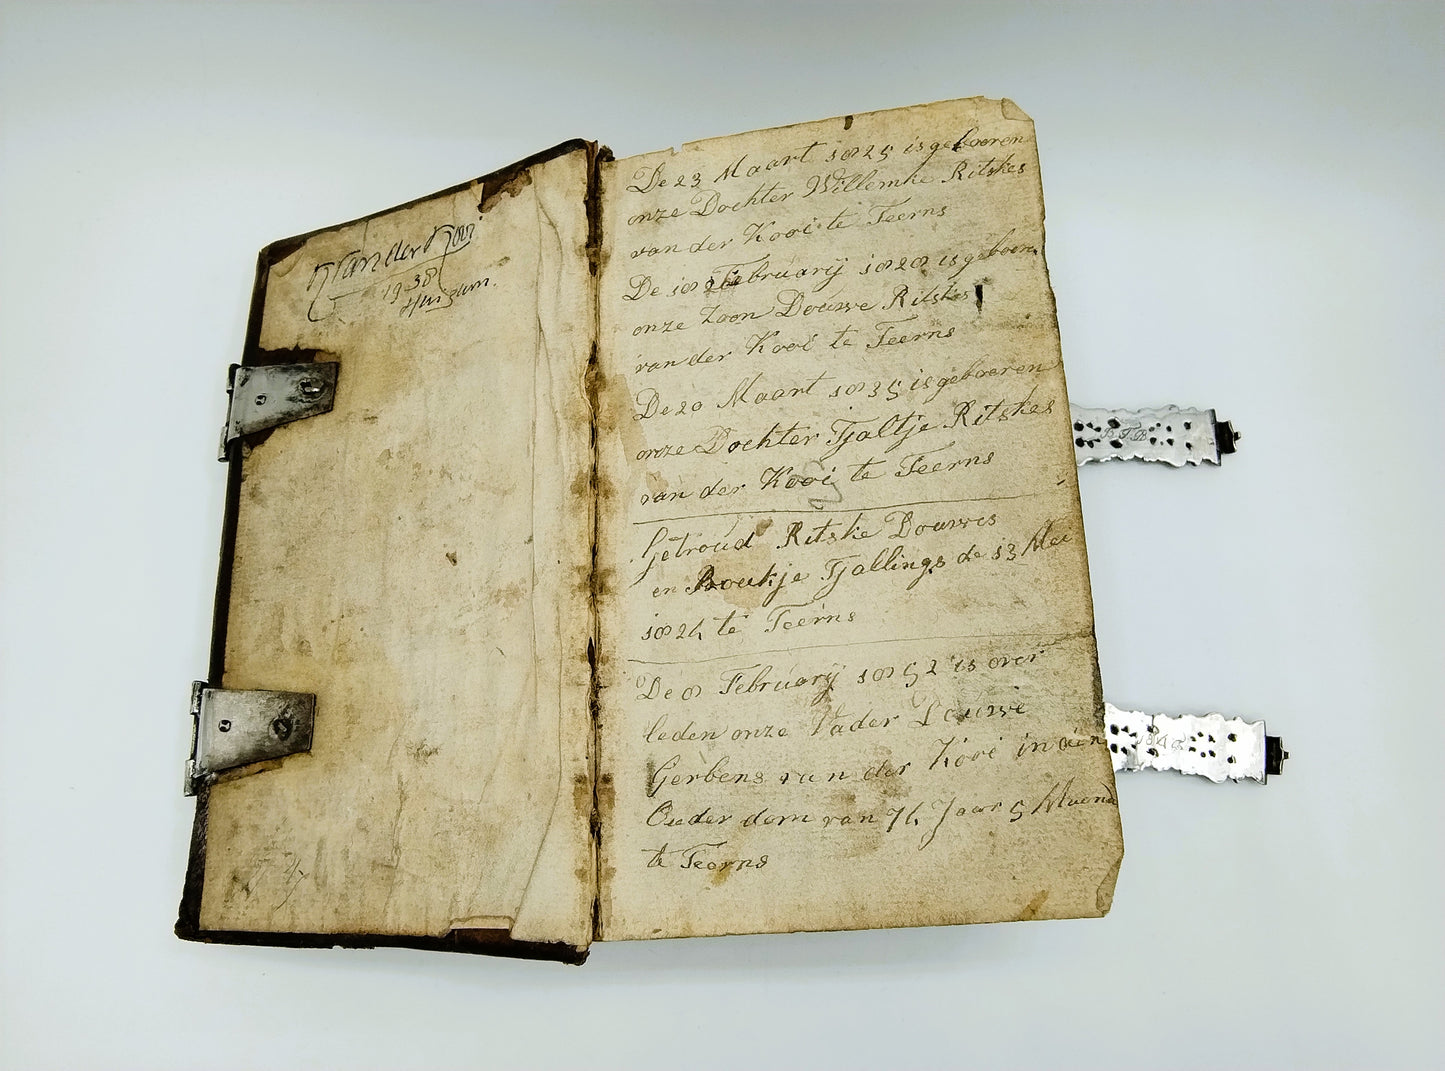 R van der Kooi
1938
Huizum.
De 23 Maart 1825 is geboren
onze Dochter Willemke Ritskes
van der Kooi te Teerns
De 18 Februarij 1828 is geboren
onze Zoon Douwe Ritskes
van der Kooi te Teerns
De 20 Maart 1835 is geboren
onze Dochter Tjaltje Ritskes
van der Kooi te Teerns
Getroud Ritske Douwes
en Boukje Tjallings de 13 Mei
1824 te Teerns
De 8 Februarij 1852 is over
leden onze Vader Douwe
Gerbens van der Kooi in den
Ouder dom van 76 Jaar 5 Maand
te Teerns
B T B